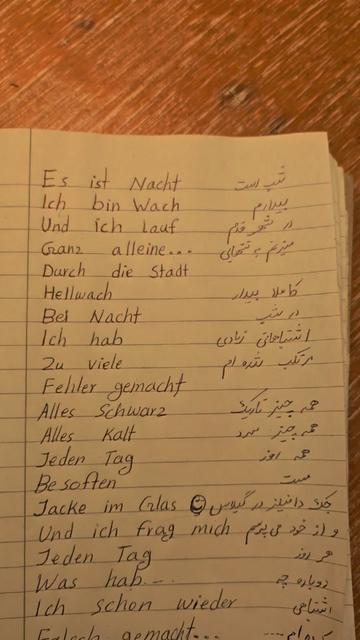 Es ist Nacht شب است
Ich bin Wach بیدارم
Und ich lauf در شهر قدم
Ganz alleine... میزنم به تنهایی
Durch die Stadt
Hellwach کاملا بیدار
Bei Nacht در شب
Ich hab اشتباهاتی زیادی
Zu viele مرتکب شده ام
Fehler gemacht
Alles Schwarz همه چیز تاریک
Alles Kalt همه چیز سرد
Jeden Tag همه روز
Besoffen مست
Jacke im Glas در گیلاس
Und ich frag mich و از خود می پرسم
Jeden Tag هر روز
Was hab... دوباره چه
Ich schon wieder اشتباهی
Falsch gemacht...